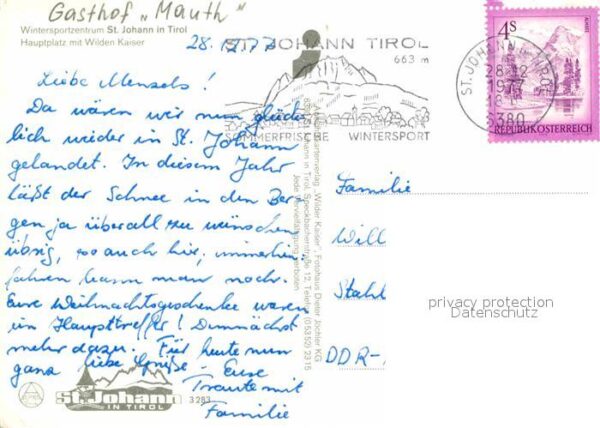 Gasthof „Mauth"
Wintersportzentrum St. Johann in Tirol
Hauptplatz mit Wilden Kaiser
28. 12. 77
Liebe Mensels!
Da wären wir nun glück
lich wieder in St. Johann
gelandet. In diesem Jahr
läßt der Schnee in den Ber
gen ja überall zu wünschen
übrig, so auch hier, immerhin
fahren kann man noch.
Eure Weihnachtsgeschenke waren
ein Haupttreffer! Demnächst
mehr dazu. Für heute nun
ganz liebe Grüße - Eure
Traute mit
Familie
St. Johann
IN TIROL
3283
Kartenverlag „Wilder Kaiser", Fotohaus Dieter Jöchler KG
St. Johann in Tirol, Speckbacherstraße 12, Telefon (05352) 2315
Jede Vervielfältigung verboten
ST. JOHANN TIROL
663 m
SOMMERFRISCHE WINTERSPORT
ST. JOHANN IN TIROL
28.12
1977
18
6380
4S
AHRE
REPUBLIK ÖSTERREICH
Familie
Will
Stahl
DDR-
privacy protection
Datenschutz